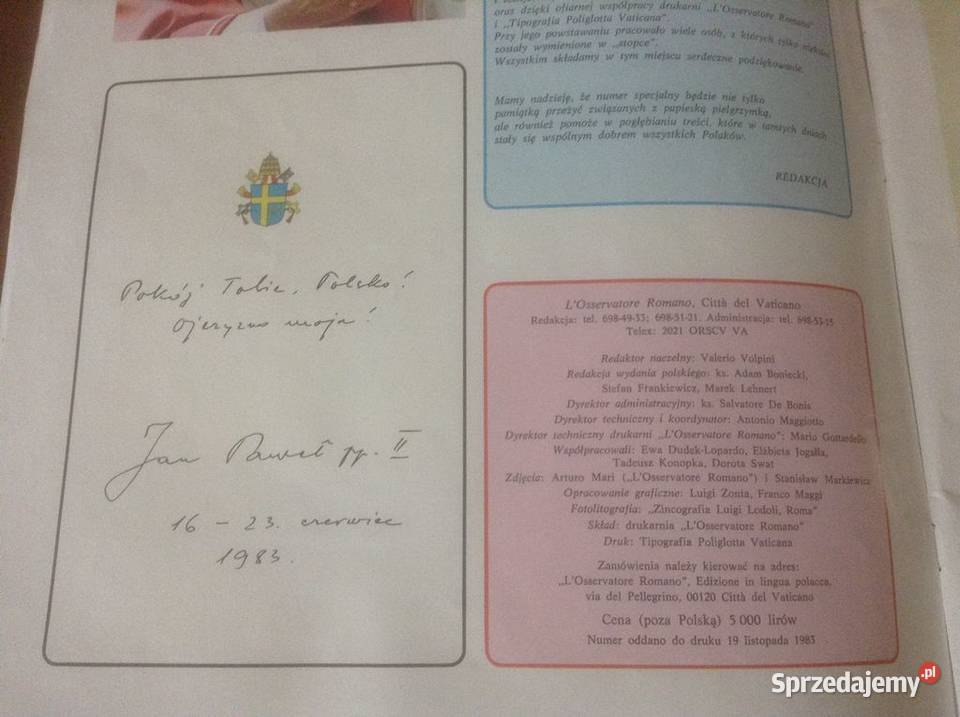 oraz dzięki ofiarnej współpracy drukarni „L'Osservatore Romano"
i „Tipografia Poliglotta Vaticana".
Przy jego powstawaniu pracowało wiele osób, z których tylko niektóre
zostały wymienione w „stopce".
Wszystkim składamy w tym miejscu serdeczne podziękowanie.
Mamy nadzieję, że numer specjalny będzie nie tylko
pamiątką przeżyć związanych z papieską pielgrzymką,
ale również pomoże w pogłębianiu treści, które w tamtych dniach
stały się wspólnym dobrem wszystkich Polaków.
REDAKCJA
Pokój Tobie, Polsko!
Ojczyzno moja!
Jan Paweł pp. II
16 – 23. czerwiec
1983.
L'Osservatore Romano, Città del Vaticano
Redakcja: tel. 698-49-33; 698-51-21. Administracja: tel. 698-53-15
Telex: 2021 ORSCV VA
Redaktor naczelny: Valerio Volpini
Redakcja wydania polskiego: ks. Adam Boniecki,
Stefan Frankiewicz, Marek Lehnert
Dyrektor administracyjny: ks. Salvatore De Bonis
Dyrektor techniczny i koordynator: Antonio Maggiotto
Dyrektor techniczny drukarni „L'Osservatore Romano": Mario Gottardello
Współpracowali: Ewa Dudek-Lopardo, Elżbieta Jogałła,
Tadeusz Konopka, Dorota Swat
Zdjęcia: Arturo Mari („L'Osservatore Romano") i Stanisław Markiewicz
Opracowanie graficzne: Luigi Zonta, Franco Maggi
Fotolitografia: „Zincografia Luigi Lodoli, Roma"
Skład: drukarnia „L'Osservatore Romano"
Druk: Tipografia Poliglotta Vaticana
Zamówienia należy kierować na adres:
„L'Osservatore Romano", Edizione in lingua polacca,
via del Pellegrino, 00120 Città del Vaticano
Cena (poza Polską) 5 000 lirów
Numer oddano do druku 19 listopada 1983
Sprzedajemy.pl